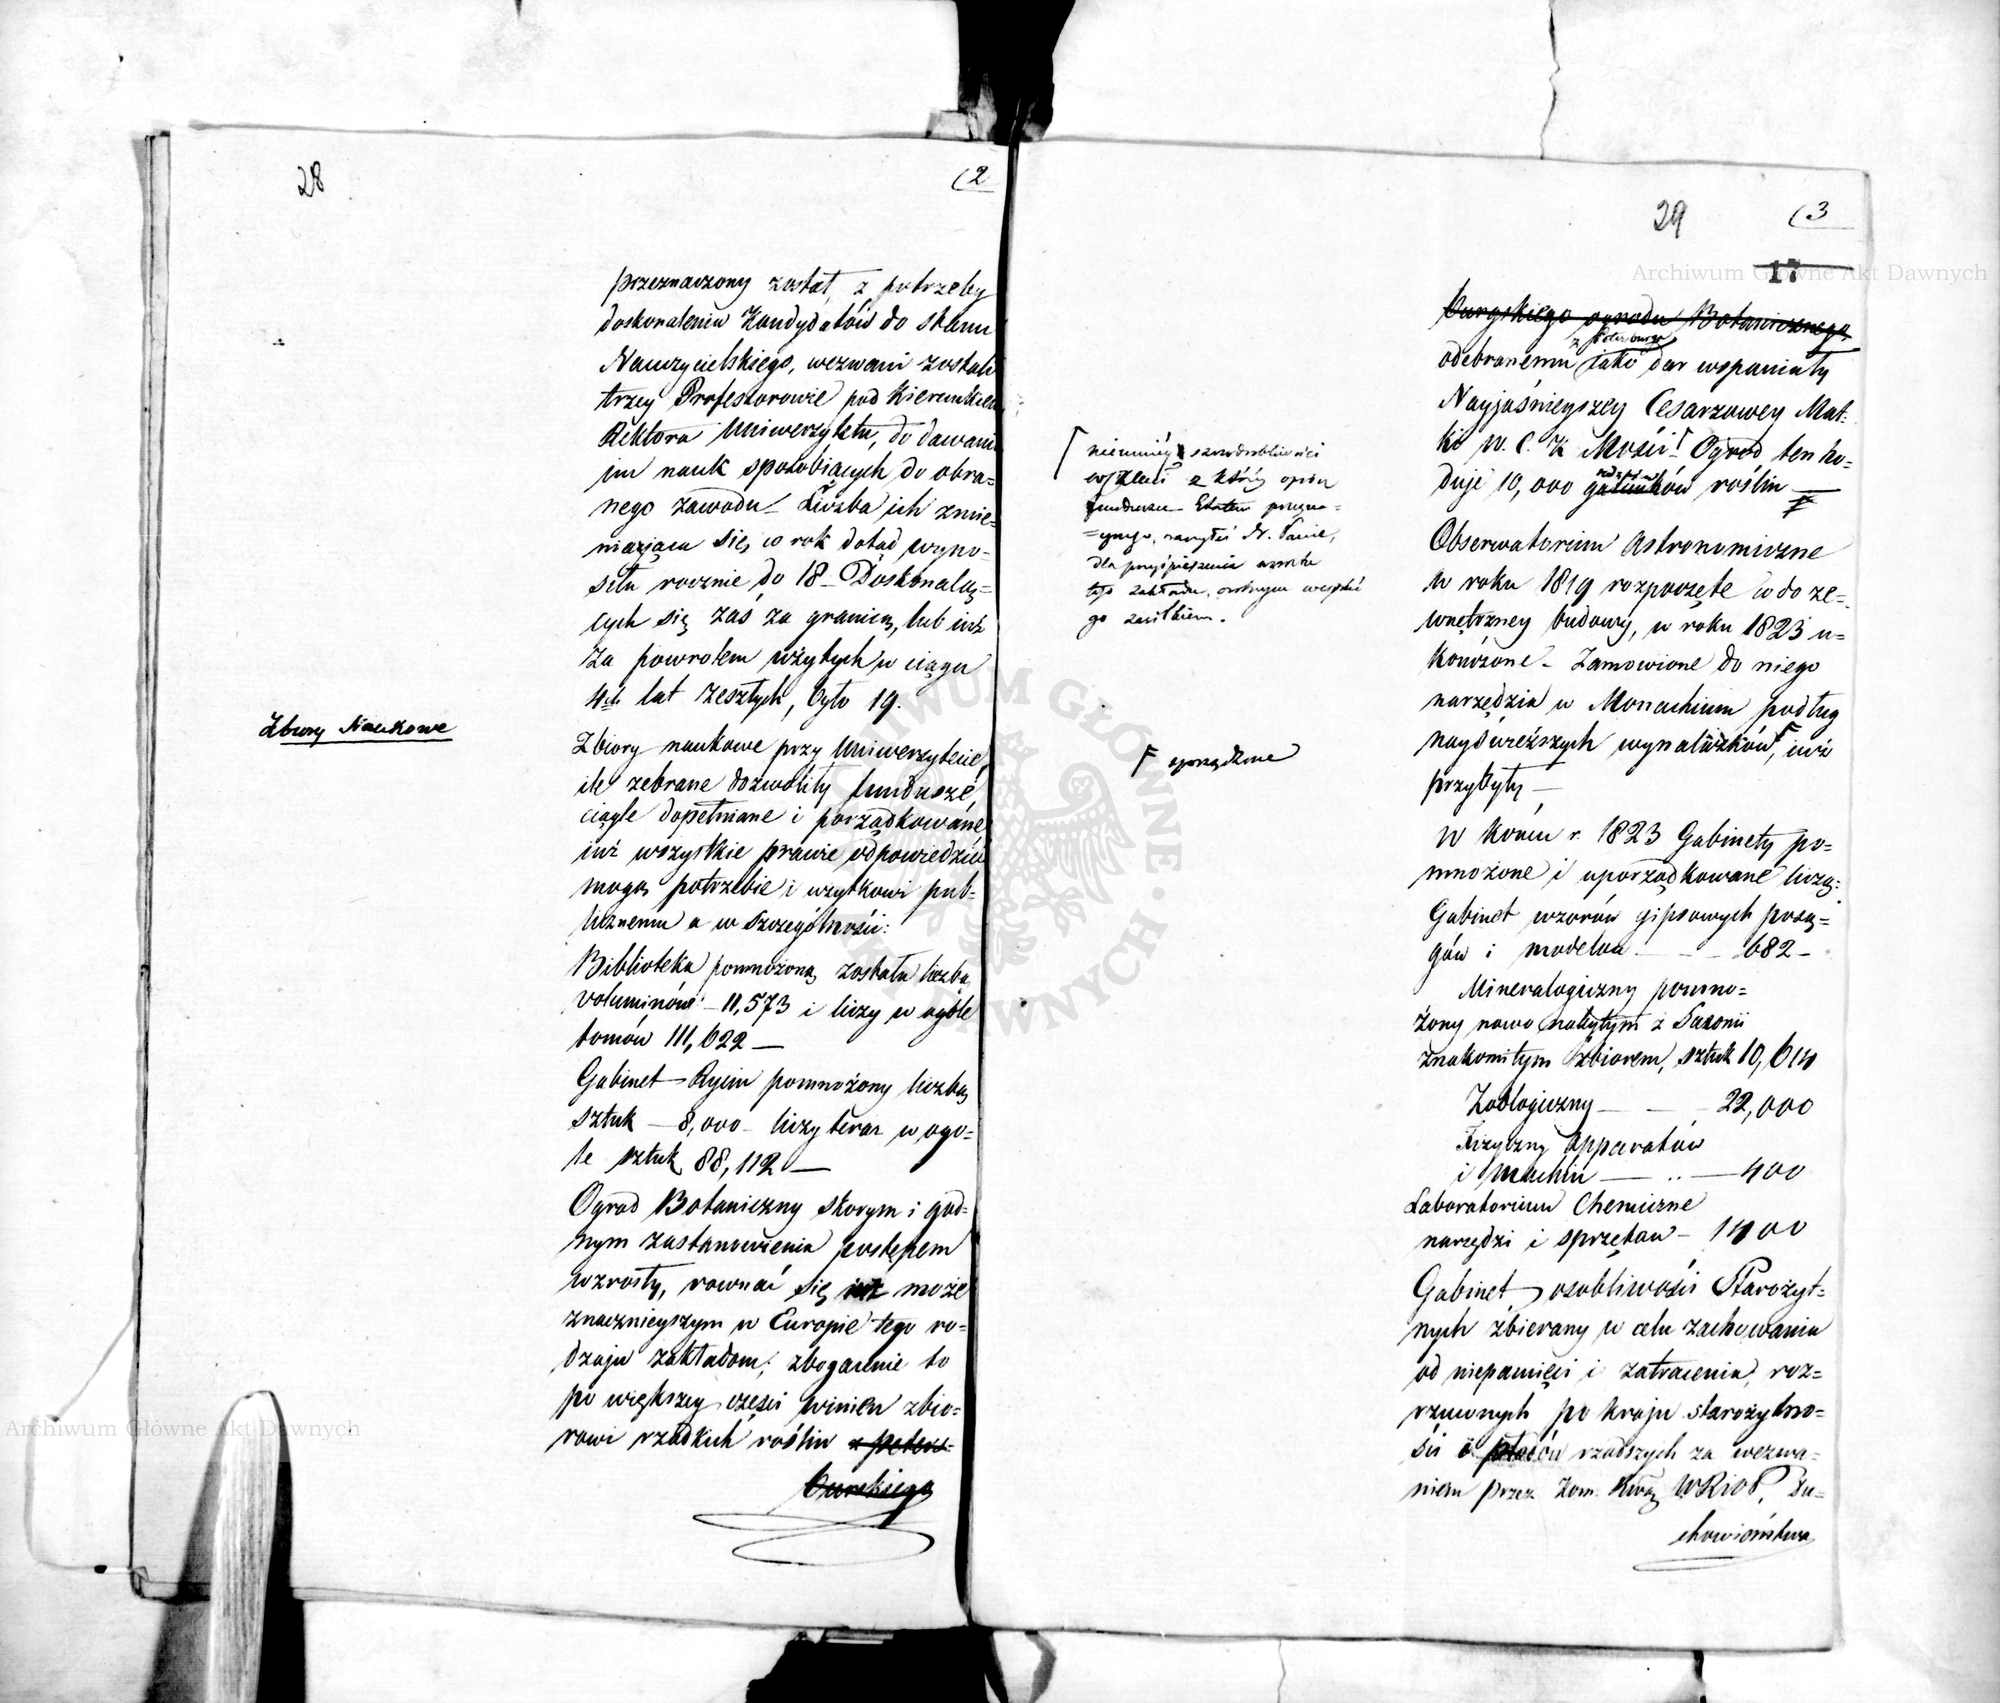 28
(2
przeznaczony został, z potrzeby
doskonalenia Kandydatów do stanu
Nauczycielskiego, wezwani zostali
trzey Profesorowie pod kierunkiem
Rektora Uniwerzytetu, do dawania
im nauk sposobiących do obra=
nego zawodu_ Liczba ich zmie=
niaiąca się co rok dotąd wyno=
siła rocznie do 18_ Doskonalą=
cych się zaś za granicą, lub iuż
za powrotem użytych w ciągu
4ch lat zeszłych, było 19.
Zbiory Naukowe
Zbiory naukowe przy Uniwerzytecie,
ile zebrane dozwoliły fundusze,
ciągle dopełniane i porządkowane
iuż wszystkie prawie odpowiedzieć
mogą potrzebie i użytkowi pub=
licznemu a w szczególności:
Biblioteka pomnożona została liczbą
voluminów – 11,573 i liczy w ogóle
tomów 111,622 —
Gabinet Rycin pomnożony liczbą
sztuk – 8,000 – liczy teraz w ogó=
le sztuk 88,112 —
Ogrod Botaniczny skorym i god=
nym zastanowienia postępem
wzrosły, rownać się iuż może
znacznieyszym w Europie tego ro=
dzaju zakładom; zbogacenie to
po większey części winien zbio=
rowi rzadkich roślin z peters=
burskiego
29
(3
17
burgskiego ogrodu Botanicznego
z Petersburga
odebranemu jako dar wspaniały
Nayjaśnieyszey Cesarzowey Mat=
ki W. C. K Mości! Ogrod ten ho=
duje 10,000 gatunków roślin —
Γ niemniéy szczodrobliwości
z któréy oprócz
funduszu Etatem
dla przyśpieszenia wzrostu
tego zakładu,
go zasiłkiem.
Obserwatorium Astronomiczne
w roku 1819 rozpoczęte co do ze=
wnętrzney budowy, w roku 1823 u=
kończone – Zamowione do niego
narzędzia w Monachium podług
nayświeższych wynalazków, iuż
przybyły —
F sporządzone
W końcu r. 1823 Gabinety po=
mnożone i uporządkowane liczą:
Gabinet wzorów gipsowych posą=
gów i modelów — – – 682 –
Mineralogiczny pomno=
żony nowo nabytym z Saxonii
znakomitym zbiorem, sztuk 10,614
Zoologiczny — — – 22,000
Fizyczny apparatów
i Machin — .. — 400
Laboratorium Chemiczne
narzędzi i sprzętów – 1400
Gabinet osobliwości Starożyt=
nych zbierany w celu zachowania
od niepamięci i zatracenia, roz=
rzuconych po kraju starożytno=
ści i płodów rzadszych za wezwa=
niem przez Kom. Rząd. WRiOP, Du=
chowieństwa
Archiwum Główne Akt Dawnych
Archiwum Główne Akt Dawnych